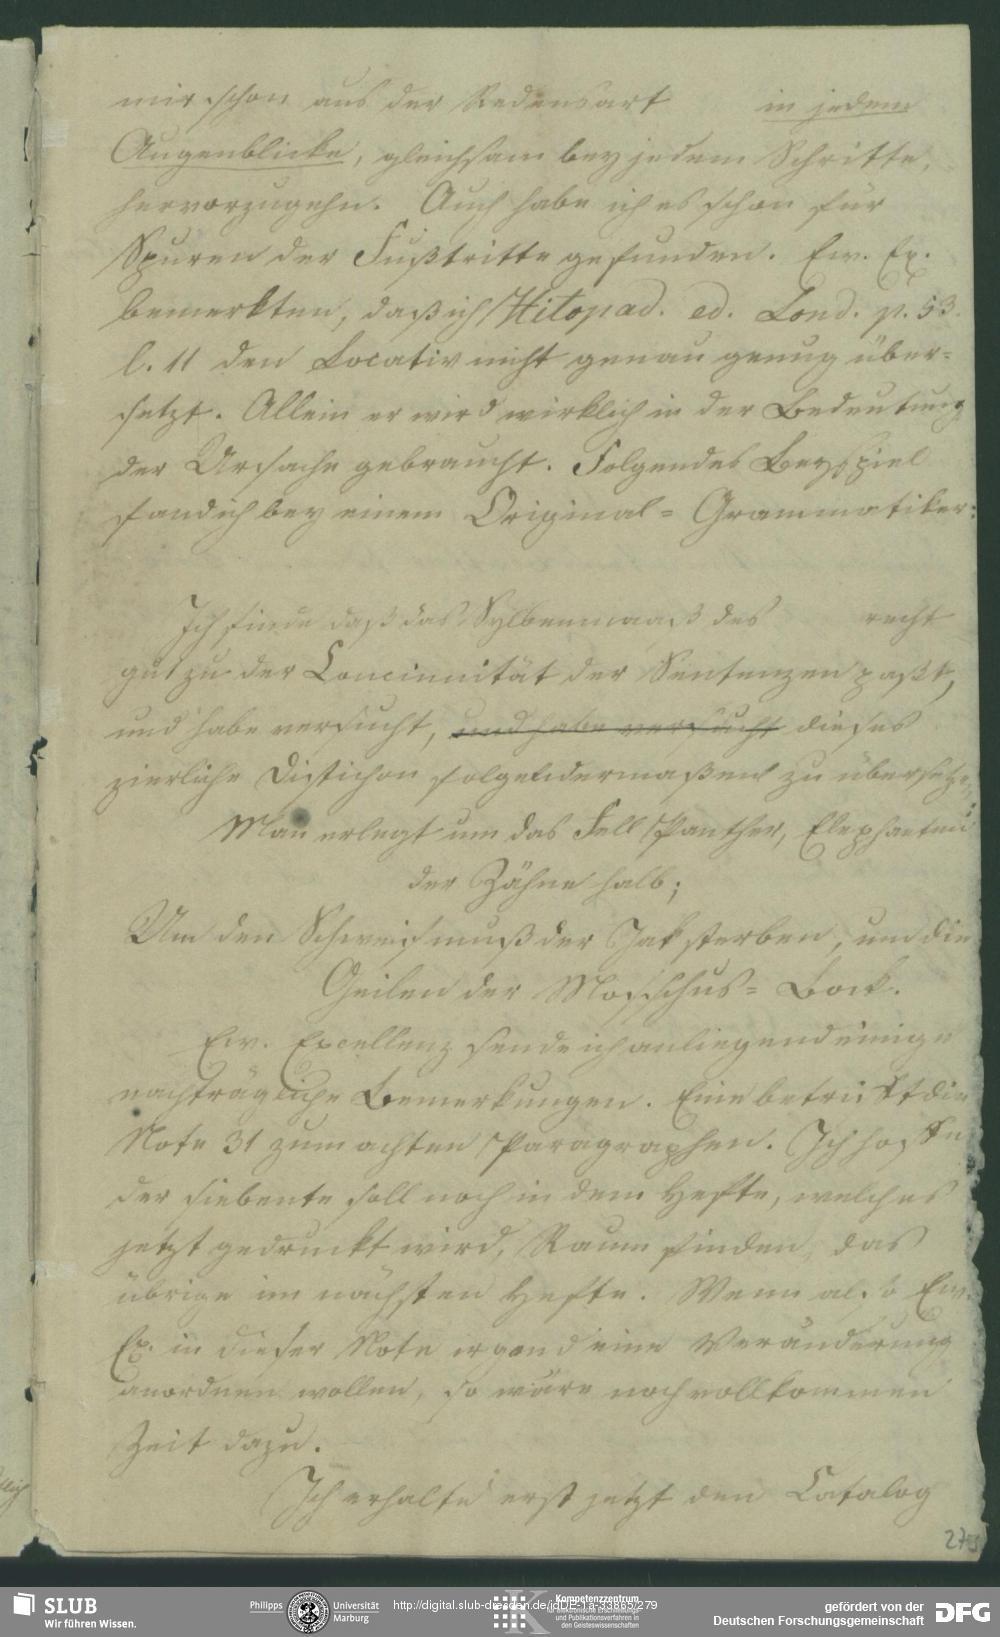 mir schon aus der Redensart in jedem
Augenblicke, gleichsam bey jedem Schritte,
hervorzugehn. Auch habe ich es schon für
Spuren der Fußtritte gefunden. Ew. Ex.
bemerkten, daß ich Hitopad. ed. Lond. p. 53.
l. 11 den Locativ nicht genau genug über=
setzt. Allein er wird wirklich in der Bedeutung
der Ursache gebraucht. Folgendes Beyspiel
fand ich bey einem Original= Grammatiker:
Ich finde daß das Sylbenmaaß des recht
gut zu der Concinnität der Sentenzen paßt,
und habe versucht, und habe versucht dieses
zierliche Distichon folgendermaßen zu übersetzen:
Man erlegt um das Fell Panther, Elephanten
der Zähne halb;
Um den Schweif muß der Jak sterben, um die
Geilen der Moschus= Bock.
Ew. Excellenz sende ich anliegend einige
nachträgliche Bemerkungen. Eine betrifft die
Note 31 zum achten Paragraphen. Ich hoffe
der siebente soll noch in dem Hefte, welches
jetzt gedruckt wird, Raum finden, das
übrige im nächsten Hefte. Wenn also Ew.
Ex. in dieser Note irgend eine Veränderung
anordnen wollen, so wäre noch vollkommen
Zeit dazu.
Ich erhalte erst jetzt den Catalog
275
SLUB
Wir führen Wissen.
Philipps Universität
Marburg
http://digital.slub-dresden.de/idDE-1a-33865/279
Kompetenzzentrum
für elektronische Erschließungs-
und Publikationsverfahren in
den Geisteswissenschaften
gefördert von der
Deutschen Forschungsgemeinschaft
DFG